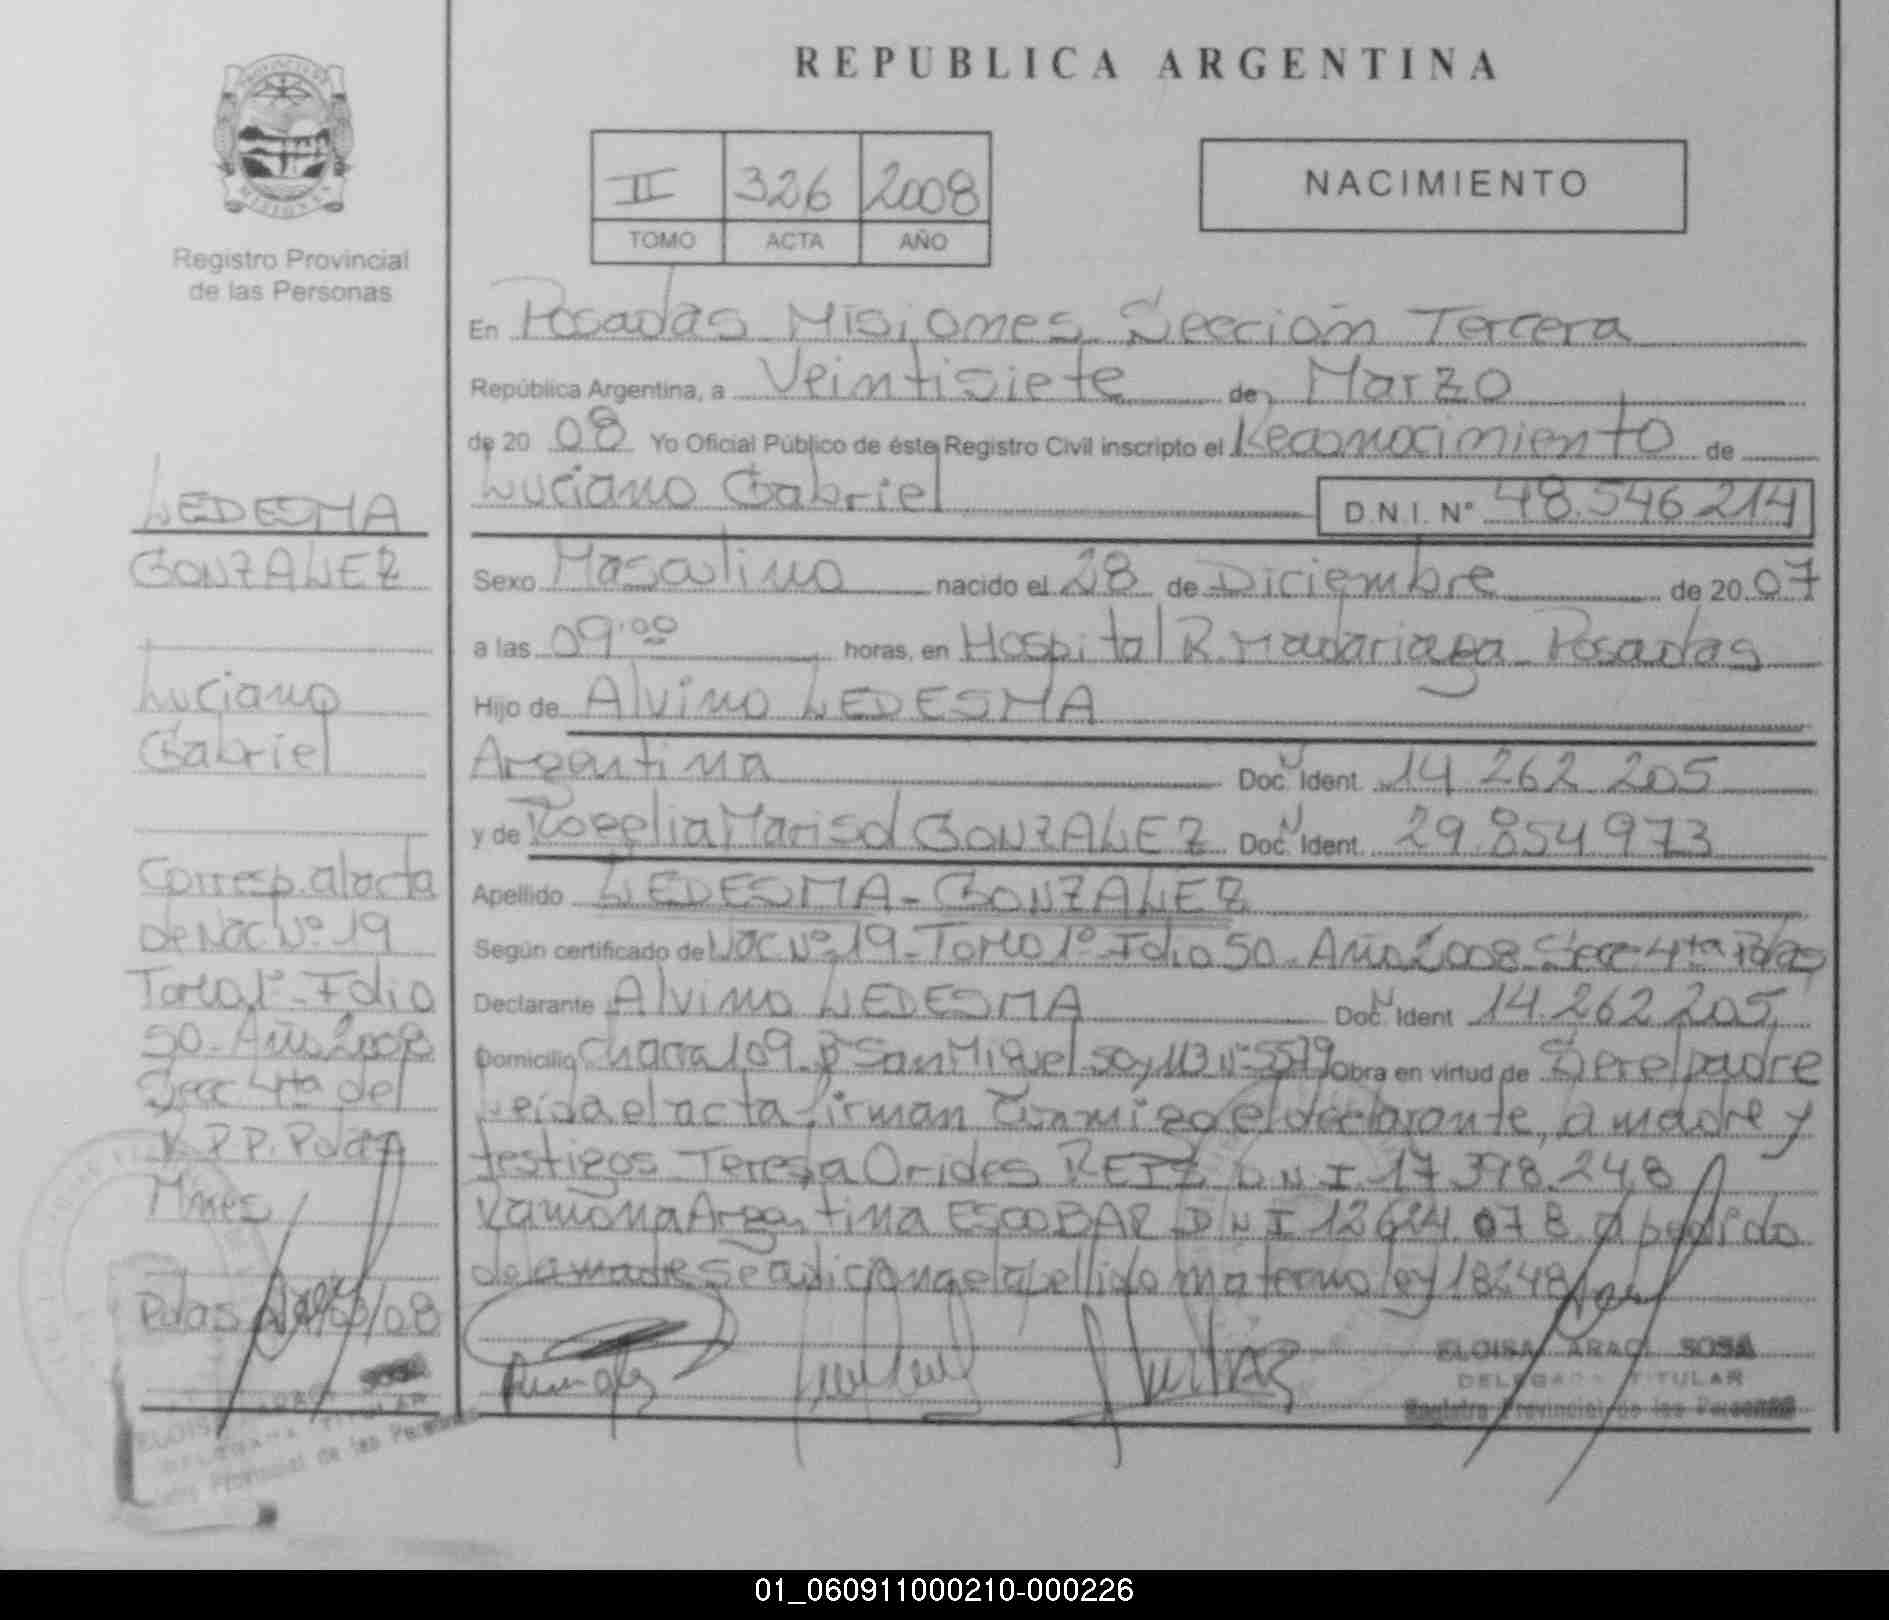 REPUBLICA ARGENTINA
PROVINCIA DE
MISIONES
Registro Provincial
de las Personas
II 326 2008
TOMO ACTA AÑO
NACIMIENTO
En Posadas Misiones Sección Tercera
República Argentina, a Veintisiete de Marzo
de 20 08 Yo Oficial Público de éste Registro Civil inscripto el Reconocimiento de
Luciano Gabriel D.N.I. N° 48.546 214
Sexo Masculino nacido el 28 de Diciembre de 20 07
a las 09:00 horas, en Hospital R. Madariaga Posadas
Hijo de Alvino LEDESMA
Argentina Doc. N Ident. 14 262 205
y de Rogelia Marisol GONZALEZ Doc. N Ident. 29.854 973
Apellido LEDESMA - GONZALEZ
Según certificado de Nac Nº 19 - Tomo 1º - Folio 50 - Año 2008 Secc 4ta Pdas
Declarante Alvino LEDESMA Doc. N Ident 14.262 205
Domicilio Chacra 109 - Bº San Miguel 50 y 113 Nº 5579 Obra en virtud de Ser el padre
Leida el acta firman Conmigo el declarante, la madre y
testigos Teresa Orides REIZ D N I 17 398.248
Ramona Argentina ESCOBAR D N I 12624.078 a pedido
de la madre se adiciona el apellido materno ley 18248
ELOISA ARACI SOSA
DELEGADA TITULAR
Registro Provincial de las Personas
LEDESMA
GONZALEZ
Luciano
Gabriel
Corresp. al acta
de Nac Nº 19
Tomo 1º - Folio
50 - Año 2008
Secc 4ta del
R.P.P. Pdas
Mnes
Pdas /03/08
ELOISA
DELEGADA TITULAR
Provincial de las Personas
01_060911000210-000226